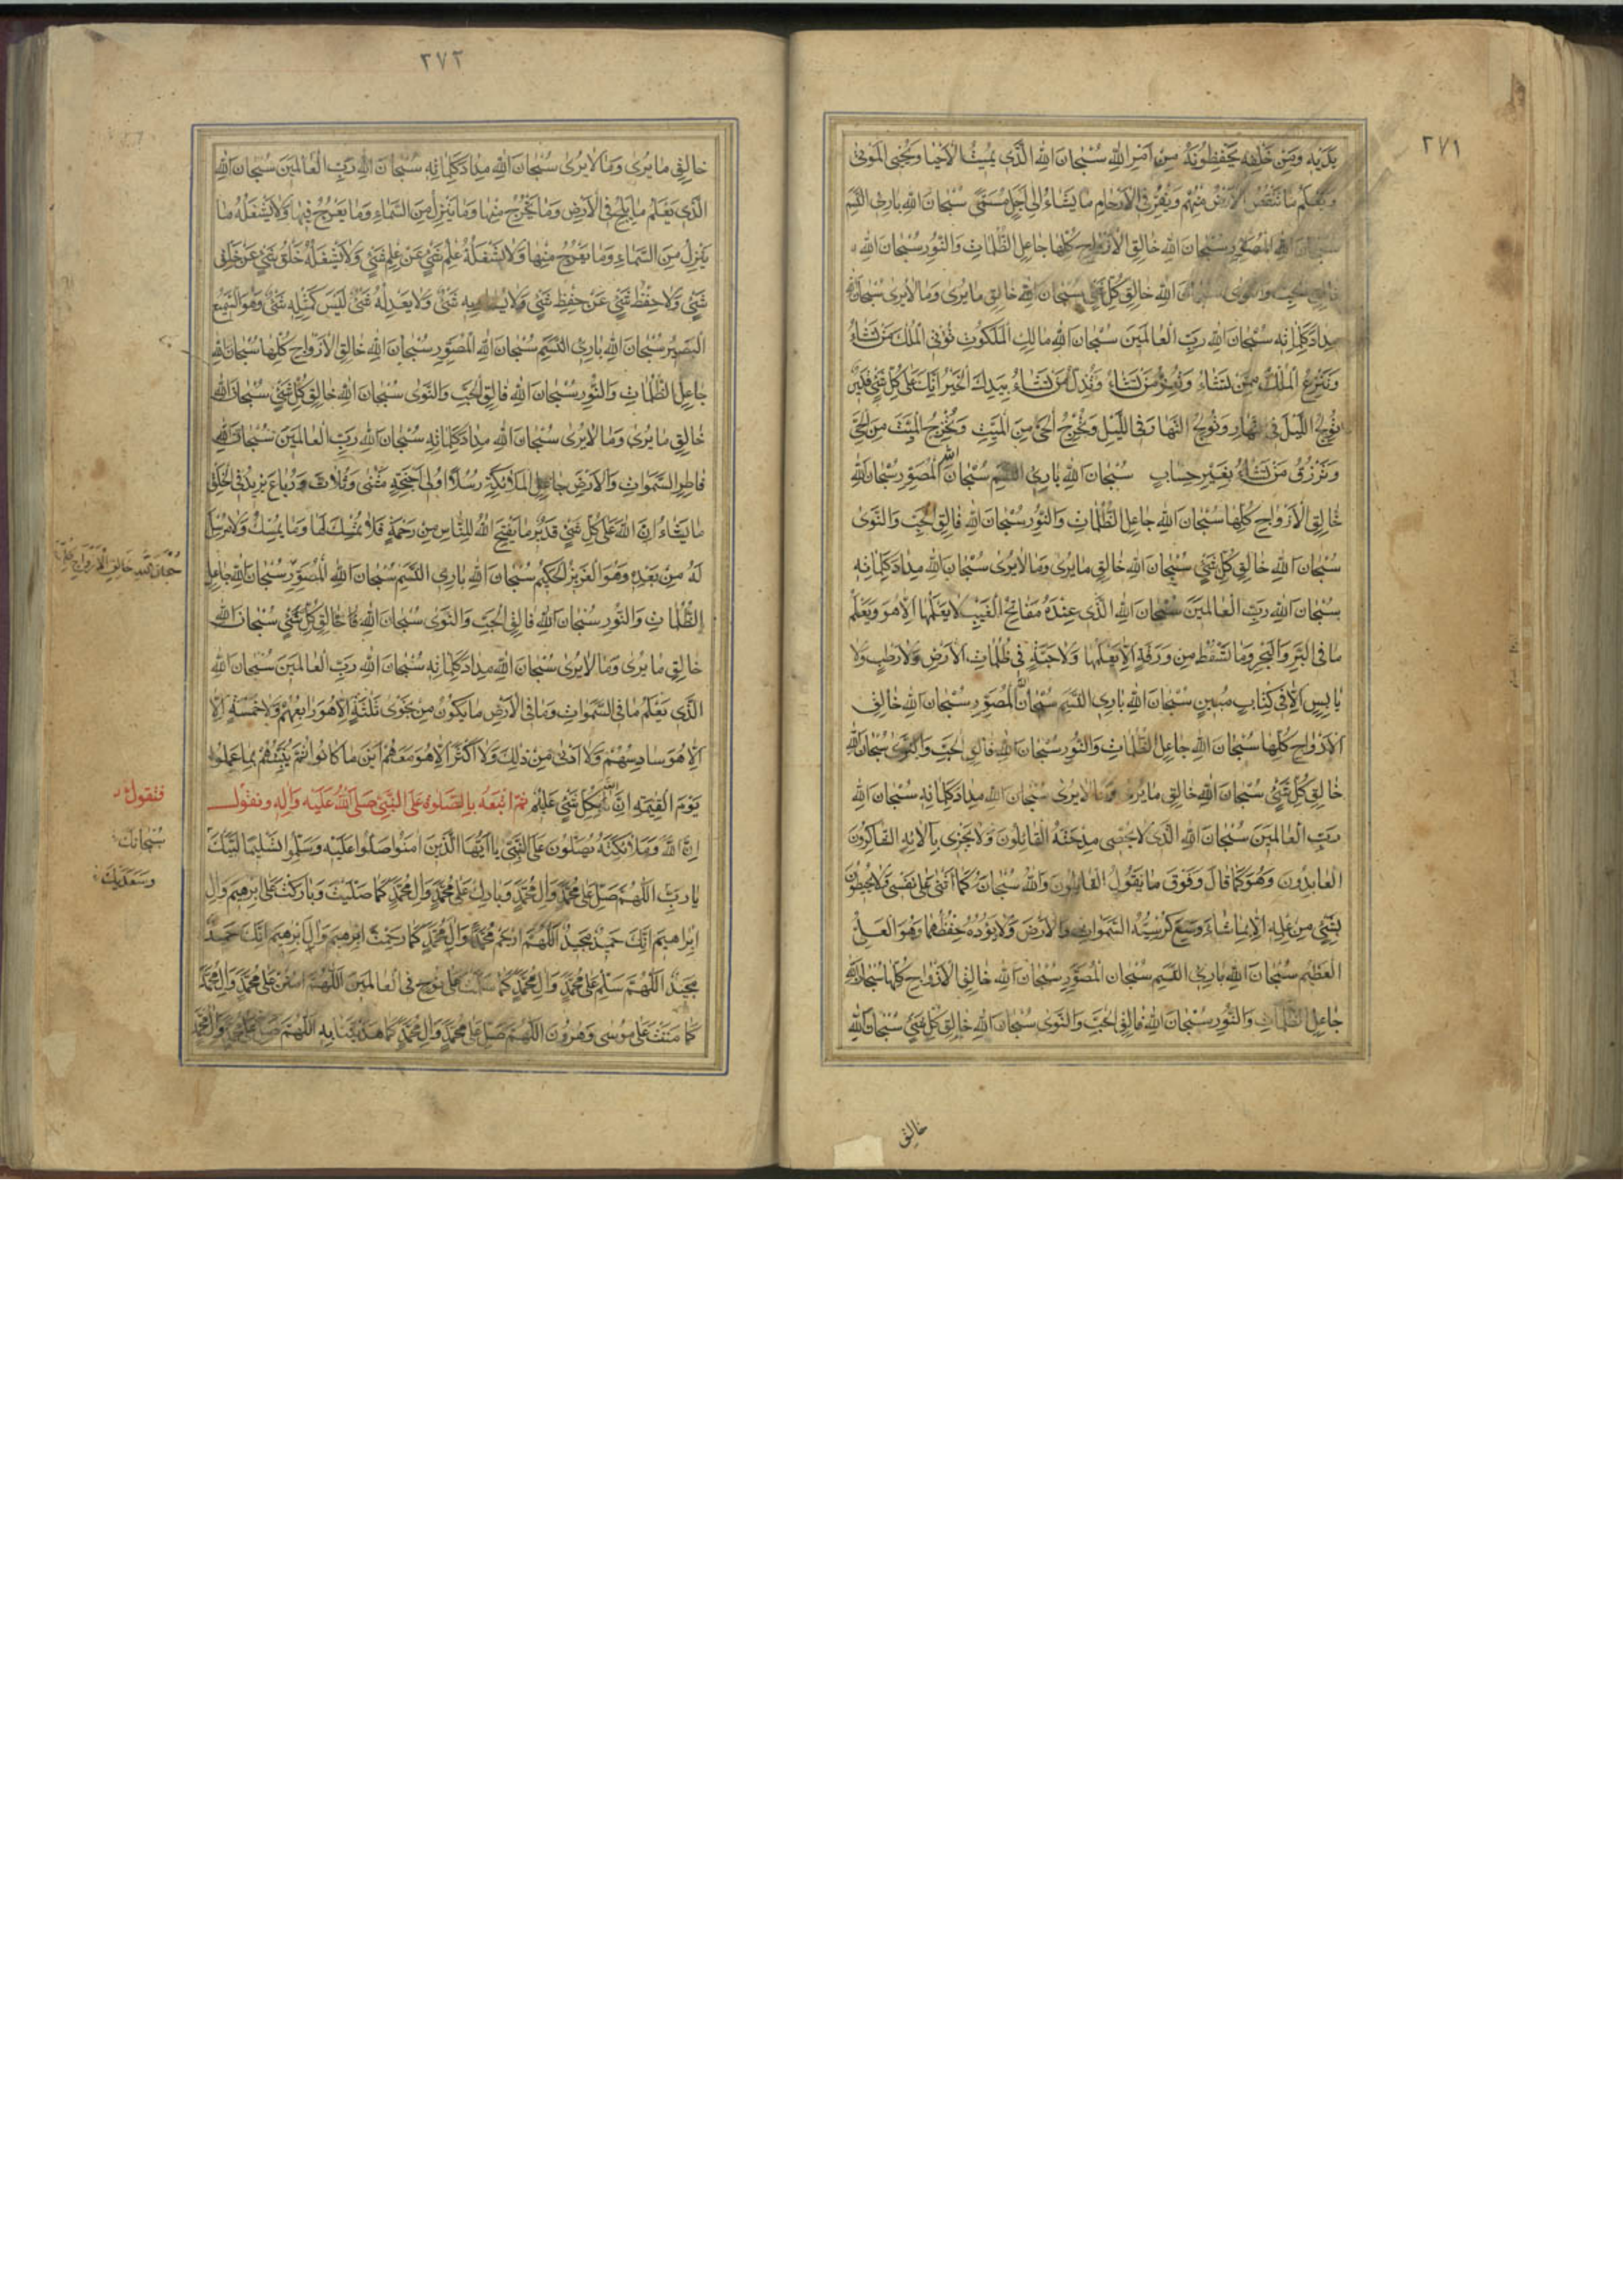 ٢٧١
يَدَيْهِ وَمِنْ خَلْفِهِ يَحْفَظُونَهُ مِنْ اَمْرِ اللهِ سُبْحانَ اللهِ الَّذى يُميتُ الْاَحْيا وَيُحْيِى الْمَوْتى
وَيَعْلَمُ ما تَنْقُصُ الْاَرْضُ مِنْهُم وَيُقِرُّ فِى الْاَرْحامِ ما يَشاءُ اِلى اَجَلٍ مُسَمًّى سُبْحانَ اللهِ بارِئِ النَّسَمِ
سُبْحانَ اللهِ الْمُصَوِّرِ سُبْحانَ اللهِ خالِقِ الْاَزْواجِ كُلِّها جاعِلِ الظُّلُماتِ وَالنُّورِ سُبْحانَ اللهِ
فالِقِ الْحَبِّ وَالنَّوى سُبْحانَ اللهِ خالِقِ كُلِّ شَىْءٍ سُبْحانَ اللهِ خالِقِ ما يُرى وَما لا يُرى سُبْحانَ اللهِ
مِدادَ كَلِماتِهِ سُبْحانَ اللهِ رَبِّ الْعالَمينَ سُبْحانَ اللهِ مالِكِ الْمَلَكُوتِ تُؤْتِى الْمُلْكَ مَنْ تَشاءُ
وَتَنْزِعُ الْمُلْكَ مِمَّنْ تَشاءُ وَتُعِزُّ مَنْ تَشاءُ وَتُذِلُّ مَنْ تَشاءُ بِيَدِكَ الْخَيْرُ اِنَّكَ عَلى كُلِّ شَىْءٍ قَديرٌ
تُولِجُ اللَّيْلَ فِى النَّهارِ وَتُولِجُ النَّهارَ فِى اللَّيْلِ وَتُخْرِجُ الْحَىَّ مِنَ الْمَيِّتِ وَتُخْرِجُ الْمَيِّتَ مِنَ الْحَىِّ
وَتَرْزُقُ مَنْ تَشاءُ بِغَيْرِ حِسابٍ سُبْحانَ اللهِ بارِئِ النَّسَمِ سُبْحانَ اللهِ الْمُصَوِّرِ سُبْحانَ اللهِ
خالِقِ الْاَزْواجِ كُلِّها سُبْحانَ اللهِ جاعِلِ الظُّلُماتِ وَالنُّورِ سُبْحانَ اللهِ فالِقِ الْحَبِّ وَالنَّوى
سُبْحانَ اللهِ خالِقِ كُلِّ شَىْءٍ سُبْحانَ اللهِ خالِقِ ما يُرى وَما لا يُرى سُبْحانَ اللهِ مِدادَ كَلِماتِهِ
سُبْحانَ اللهِ رَبِّ الْعالَمينَ سُبْحانَ اللهِ الَّذى عِنْدَهُ مَفاتِحُ الْغَيْبِ لا يَعْلَمُها اِلَّا هُوَ وَيَعْلَمُ
ما فِى الْبَرِّ وَالْبَحْرِ وَما تَسْقُطُ مِنْ وَرَقَةٍ اِلَّا يَعْلَمُها وَلا حَبَّةٍ فى ظُلُماتِ الْاَرْضِ وَلا رَطْبٍ وَلا
يابِسٍ اِلَّا فى كِتابٍ مُبينٍ سُبْحانَ اللهِ بارِئِ النَّسَمِ سُبْحانَ اللهِ الْمُصَوِّرِ سُبْحانَ اللهِ خالِقِ
الْاَزْواجِ كُلِّها سُبْحانَ اللهِ جاعِلِ الظُّلُماتِ وَالنُّورِ سُبْحانَ اللهِ فالِقِ الْحَبِّ وَالنَّوى سُبْحانَ اللهِ
خالِقِ كُلِّ شَىْءٍ سُبْحانَ اللهِ خالِقِ ما يُرى وَما لا يُرى سُبْحانَ اللهِ مِدادَ كَلِماتِهِ سُبْحانَ اللهِ
رَبِّ الْعالَمينَ سُبْحانَ اللهِ الَّذى لا يُحْصى مِدْحَتَهُ الْقائِلُونَ وَلا يَجْزى بِآلائِهِ الشَّاكِرُونَ
الْعابِدُونَ وَهُوَ كَما قالَ وَفَوْقَ ما يَقُولُ الْقائِلُونَ وَاللهُ سُبْحانَهُ كَما اَثْنى عَلى نَفْسِهِ وَلا يُحيطُونَ
بِشَىْءٍ مِنْ عِلْمِهِ اِلَّا بِما شاءَ وَسِعَ كُرْسِيُّهُ السَّمواتِ وَالْاَرْضَ وَلا يَؤُدُهُ حِفْظُهُما وَهُوَ الْعَلِىُّ
الْعَظيمُ سُبْحانَ اللهِ بارِئِ النَّسَمِ سُبْحانَ الْمُصَوِّرِ سُبْحانَ اللهِ خالِقِ الْاَزْواجِ كُلِّها سُبْحانَ اللهِ
جاعِلِ الظُّلُماتِ وَالنُّورِ سُبْحانَ اللهِ فالِقِ الْحَبِّ وَالنَّوى سُبْحانَ اللهِ خالِقِ كُلِّ شَىْءٍ سُبْحانَ اللهِ
خالِقِ
٢٧٢
خالِقِ ما يُرى وَما لا يُرى سُبْحانَ اللهِ مِدادَ كَلِماتِهِ سُبْحانَ اللهِ رَبِّ الْعالَمينَ سُبْحانَ اللهِ
الَّذى يَعْلَمُ ما يَلِجُ فِى الْاَرْضِ وَما يَخْرُجُ مِنْها وَما يَنْزِلُ مِنَ السَّماءِ وَما يَعْرُجُ فيها وَلا يَشْغَلُهُ ما
يَنْزِلُ مِنَ السَّماءِ وَما يَعْرُجُ مِنْها وَلا يَشْغَلُهُ عِلْمُ شَىْءٍ عَنْ عِلْمِ شَىْءٍ وَلا يَشْغَلُهُ خَلْقُ شَىْءٍ عَنْ خَلْقِ
شَىْءٍ وَلا حِفْظُ شَىْءٍ عَنْ حِفْظِ شَىْءٍ وَلا يُساويهِ شَىْءٌ وَلا يَعْدِلُهُ شَىْءٌ لَيْسَ كَمِثْلِهِ شَىْءٌ وَهُوَ السَّميعُ
الْبَصيرُ سُبْحانَ اللهِ بارِئِ النَّسَمِ سُبْحانَ اللهِ الْمُصَوِّرِ سُبْحانَ اللهِ خالِقِ الْاَزْواجِ كُلِّها سُبْحانَ اللهِ
جاعِلِ الظُّلُماتِ وَالنُّورِ سُبْحانَ اللهِ فالِقِ الْحَبِّ وَالنَّوى سُبْحانَ اللهِ خالِقِ كُلِّ شَىْءٍ سُبْحانَ اللهِ
خالِقِ ما يُرى وَما لا يُرى سُبْحانَ اللهِ مِدادَ كَلِماتِهِ سُبْحانَ اللهِ رَبِّ الْعالَمينَ سُبْحانَ اللهِ
فاطِرِ السَّمواتِ وَالْاَرْضِ جاعِلِ الْمَلائِكَةِ رُسُلًا اُولى اَجْنِحَةٍ مَثْنى وَثُلاثَ وَرُباعَ يَزيدُ فِى الْخَلْقِ
ما يَشاءُ اِنَّ اللهَ عَلى كُلِّ شَىْءٍ قَديرٌ ما يَفْتَحِ اللهُ لِلنَّاسِ مِنْ رَحْمَةٍ فَلا مُمْسِكَ لَها وَما يُمْسِكْ فَلا مُرْسِلَ
لَهُ مِنْ بَعْدِهِ وَهُوَ الْعَزيزُ الْحَكيمُ سُبْحانَ اللهِ بارِئِ النَّسَمِ سُبْحانَ اللهِ الْمُصَوِّرِ سُبْحانَ اللهِ جاعِلِ
سُبْحانَ اللهِ خالِقِ الْاَزْواجِ كُلِّها
الظُّلُماتِ وَالنُّورِ سُبْحانَ اللهِ فالِقِ الْحَبِّ وَالنَّوى سُبْحانَ اللهِ خالِقِ كُلِّ شَىْءٍ سُبْحانَ اللهِ
خالِقِ ما يُرى وَما لا يُرى سُبْحانَ اللهِ مِدادَ كَلِماتِهِ سُبْحانَ اللهِ رَبِّ الْعالَمينَ سُبْحانَ اللهِ
الَّذى يَعْلَمُ ما فِى السَّمواتِ وَما فِى الْاَرْضِ ما يَكُونُ مِنْ نَجْوى ثَلثَةٍ اِلَّا هُوَ رابِعُهُمْ وَلا خَمْسَةٍ اِلَّا
اِلَّا هُوَ سادِسُهُمْ وَلا اَدْنى مِنْ ذلِكَ وَلا اَكْثَرَ اِلَّا هُوَ مَعَهُمْ اَيْنَ ما كانُوا ثُمَّ يُنَبِّئُهُمْ بِما عَمِلُوا
يَوْمَ الْقِيمَةِ اِنَّ اللهَ بِكُلِّ شَىْءٍ عَليمٌ ثمّ اتْبَعْهُ بِالصَّلوةِ عَلَى النَّبِىِّ صَلَّى اللهُ عَلَيْهِ وَالِهِ وتقول
فتقول
اِنَّ اللهَ وَمَلائِكَتَهُ يُصَلُّونَ عَلَى النَّبِىِّ يا اَيُّهَا الَّذينَ امَنُوا صَلُّوا عَلَيْهِ وَسَلِّمُوا تَسْليمًا لَبَّيْكَ
سُبْحانَكَ
يا رَبِّ اللّهُمَّ صَلِّ عَلى مُحَمَّدٍ وَالِ مُحَمَّدٍ وَبارِكْ عَلى مُحَمَّدٍ وَالِ مُحَمَّدٍ كَما صَلَّيْتَ وَبارَكْتَ عَلى اِبْرهيمَ وَالِ
وَسَعْدَيْكَ
اِبْراهيمَ اِنَّكَ حَميدٌ مَجيدٌ اللّهُمَّ ارْحَمْ مُحَمَّدًا وَالَ مُحَمَّدٍ كَما رَحِمْتَ اِبْرهيمَ وَالَ اِبْرهيمَ اِنَّكَ حَميدٌ
مَجيدٌ اللّهُمَّ سَلِّمْ عَلى مُحَمَّدٍ وَالِ مُحَمَّدٍ كَما سَلَّمْتَ عَلى نُوحٍ فِى الْعالَمينَ اللّهُمَّ امْنُنْ عَلى مُحَمَّدٍ وَالِ مُحَمَّدٍ
كَما مَنَنْتَ عَلى مُوسى وَهرُونَ اللّهُمَّ صَلِّ عَلى مُحَمَّدٍ وَالِ مُحَمَّدٍ كَما هَدَيْتَنا بِهِ اللّهُمَّ صَلِّ عَلى مُحَمَّدٍ وَالِ مُحَمَّدٍ